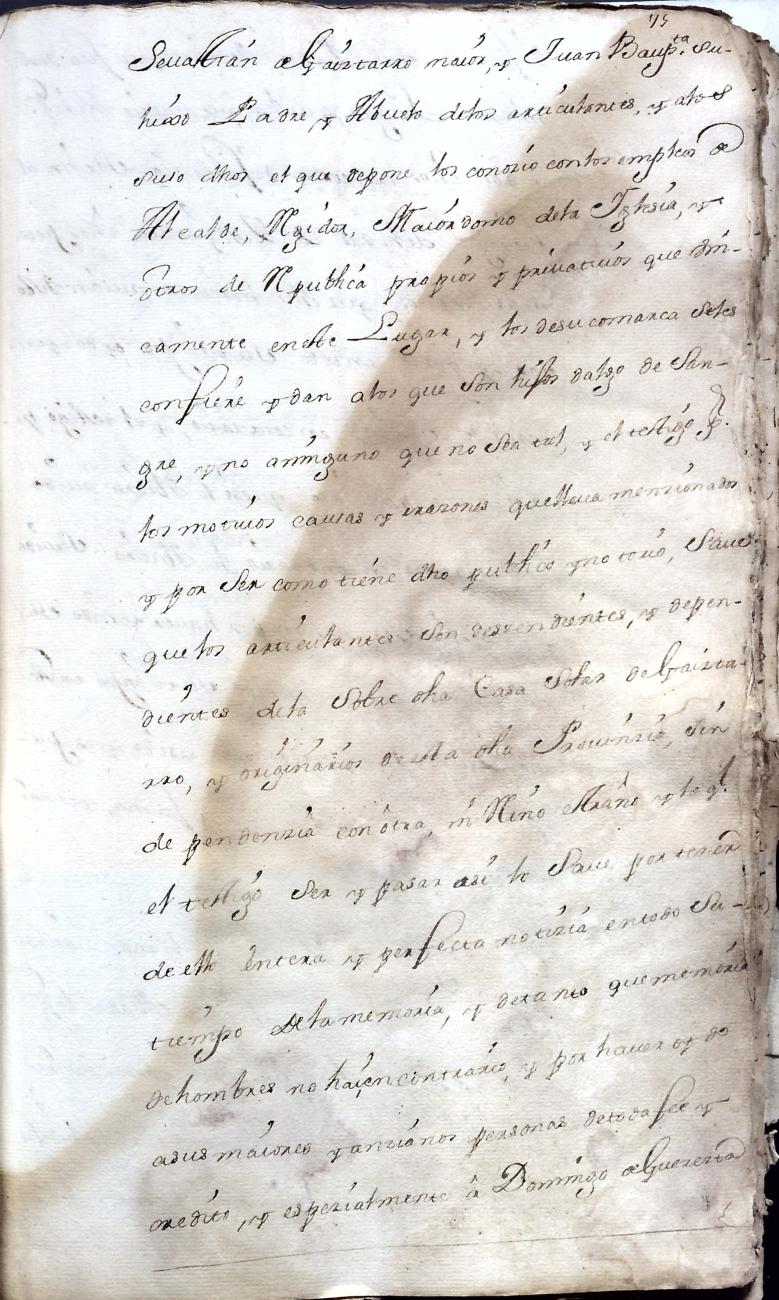 75
Sevastian de Gaiztarro maior, y Juan Baup.ta su-
hixo Padre, y Abuelo delos articulantes, y alos
suso dhos el que depone, los conozio con los empleos de
Alcalde, Rexidor, Maiordomo dela Iglesia, y
otros de Republica propios y privativos que uni-
camente en este Lugar, y los desu comarca seles
confiere y dan alos que son hijos dalgo de San-
gre, y no aninguno que no sea tal, y el testigo p.r
los motivos causas y rrazones quelleva menzionados
y por ser como tiene dho publico y notorio, save
quelos articulantes son deszendientes, y depen-
dientes dela Sobre dha Casa Solar de Gaizta-
rro, y originarios de esta dha Provinzia, sin
dependenzia con otra, ni Reino estraño y lo q.l
el testigo Ser y pasar asi lo Save por tener
de ello entera y perfecta notizia entodo su-
tiempo dela memoria, y detanto que memoria
dehombres no hai en contrario, y por haver oydo
asus maiores y anzianos personas detoda fee y
credito, y espezialmente â Domingo de Guereizta